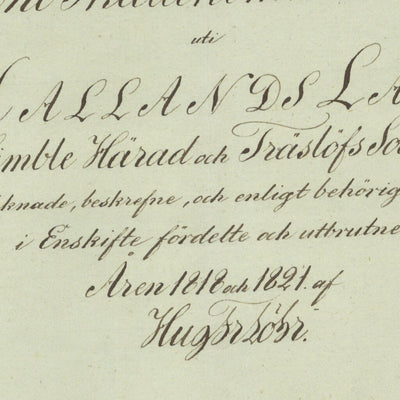 uti
HALLANDS LA
imble Härad och Träslöfs So
knade, beskrefne, och enligt behörig
i Enskifte fördelte och utbrutne
Åren 1818 och 1821. af